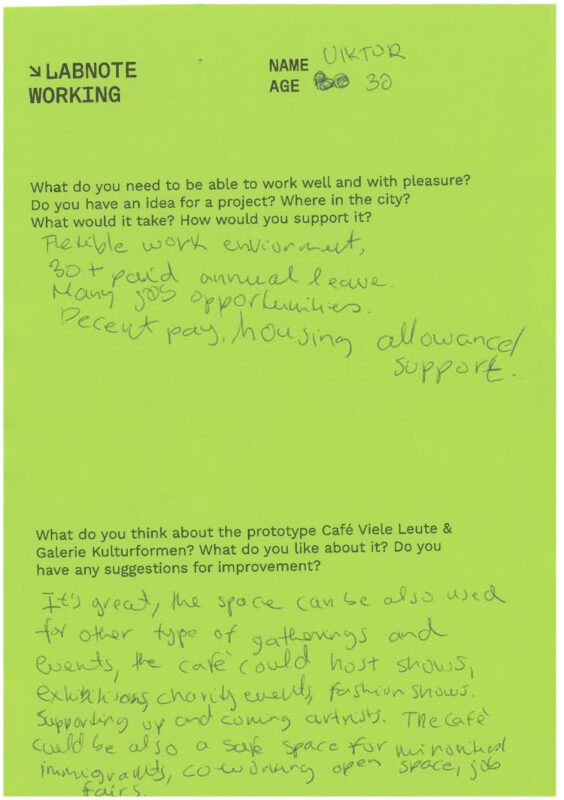 ↘ LABNOTE
WORKING
NAME VIKTOR
AGE 30
What do you need to be able to work well and with pleasure?
Do you have an idea for a project? Where in the city?
What would it take? How would you support it?
Flexible work enviorment,
30+ paid annual leave.
Many job opportunities.
Decent pay, housing. allowance/
support.
What do you think about the prototype Café Viele Leute &
Galerie Kulturformen? What do you like about it? Do you
have any suggestions for improvement?
It's great, the space can be also used
for other type of gatherings and
events, the café could host shows,
exhibitions, charity events, fashion shows.
Supporting up and coming artists. The Café
could be also a safe space for
immigrants, co-working open space, job
fairs.